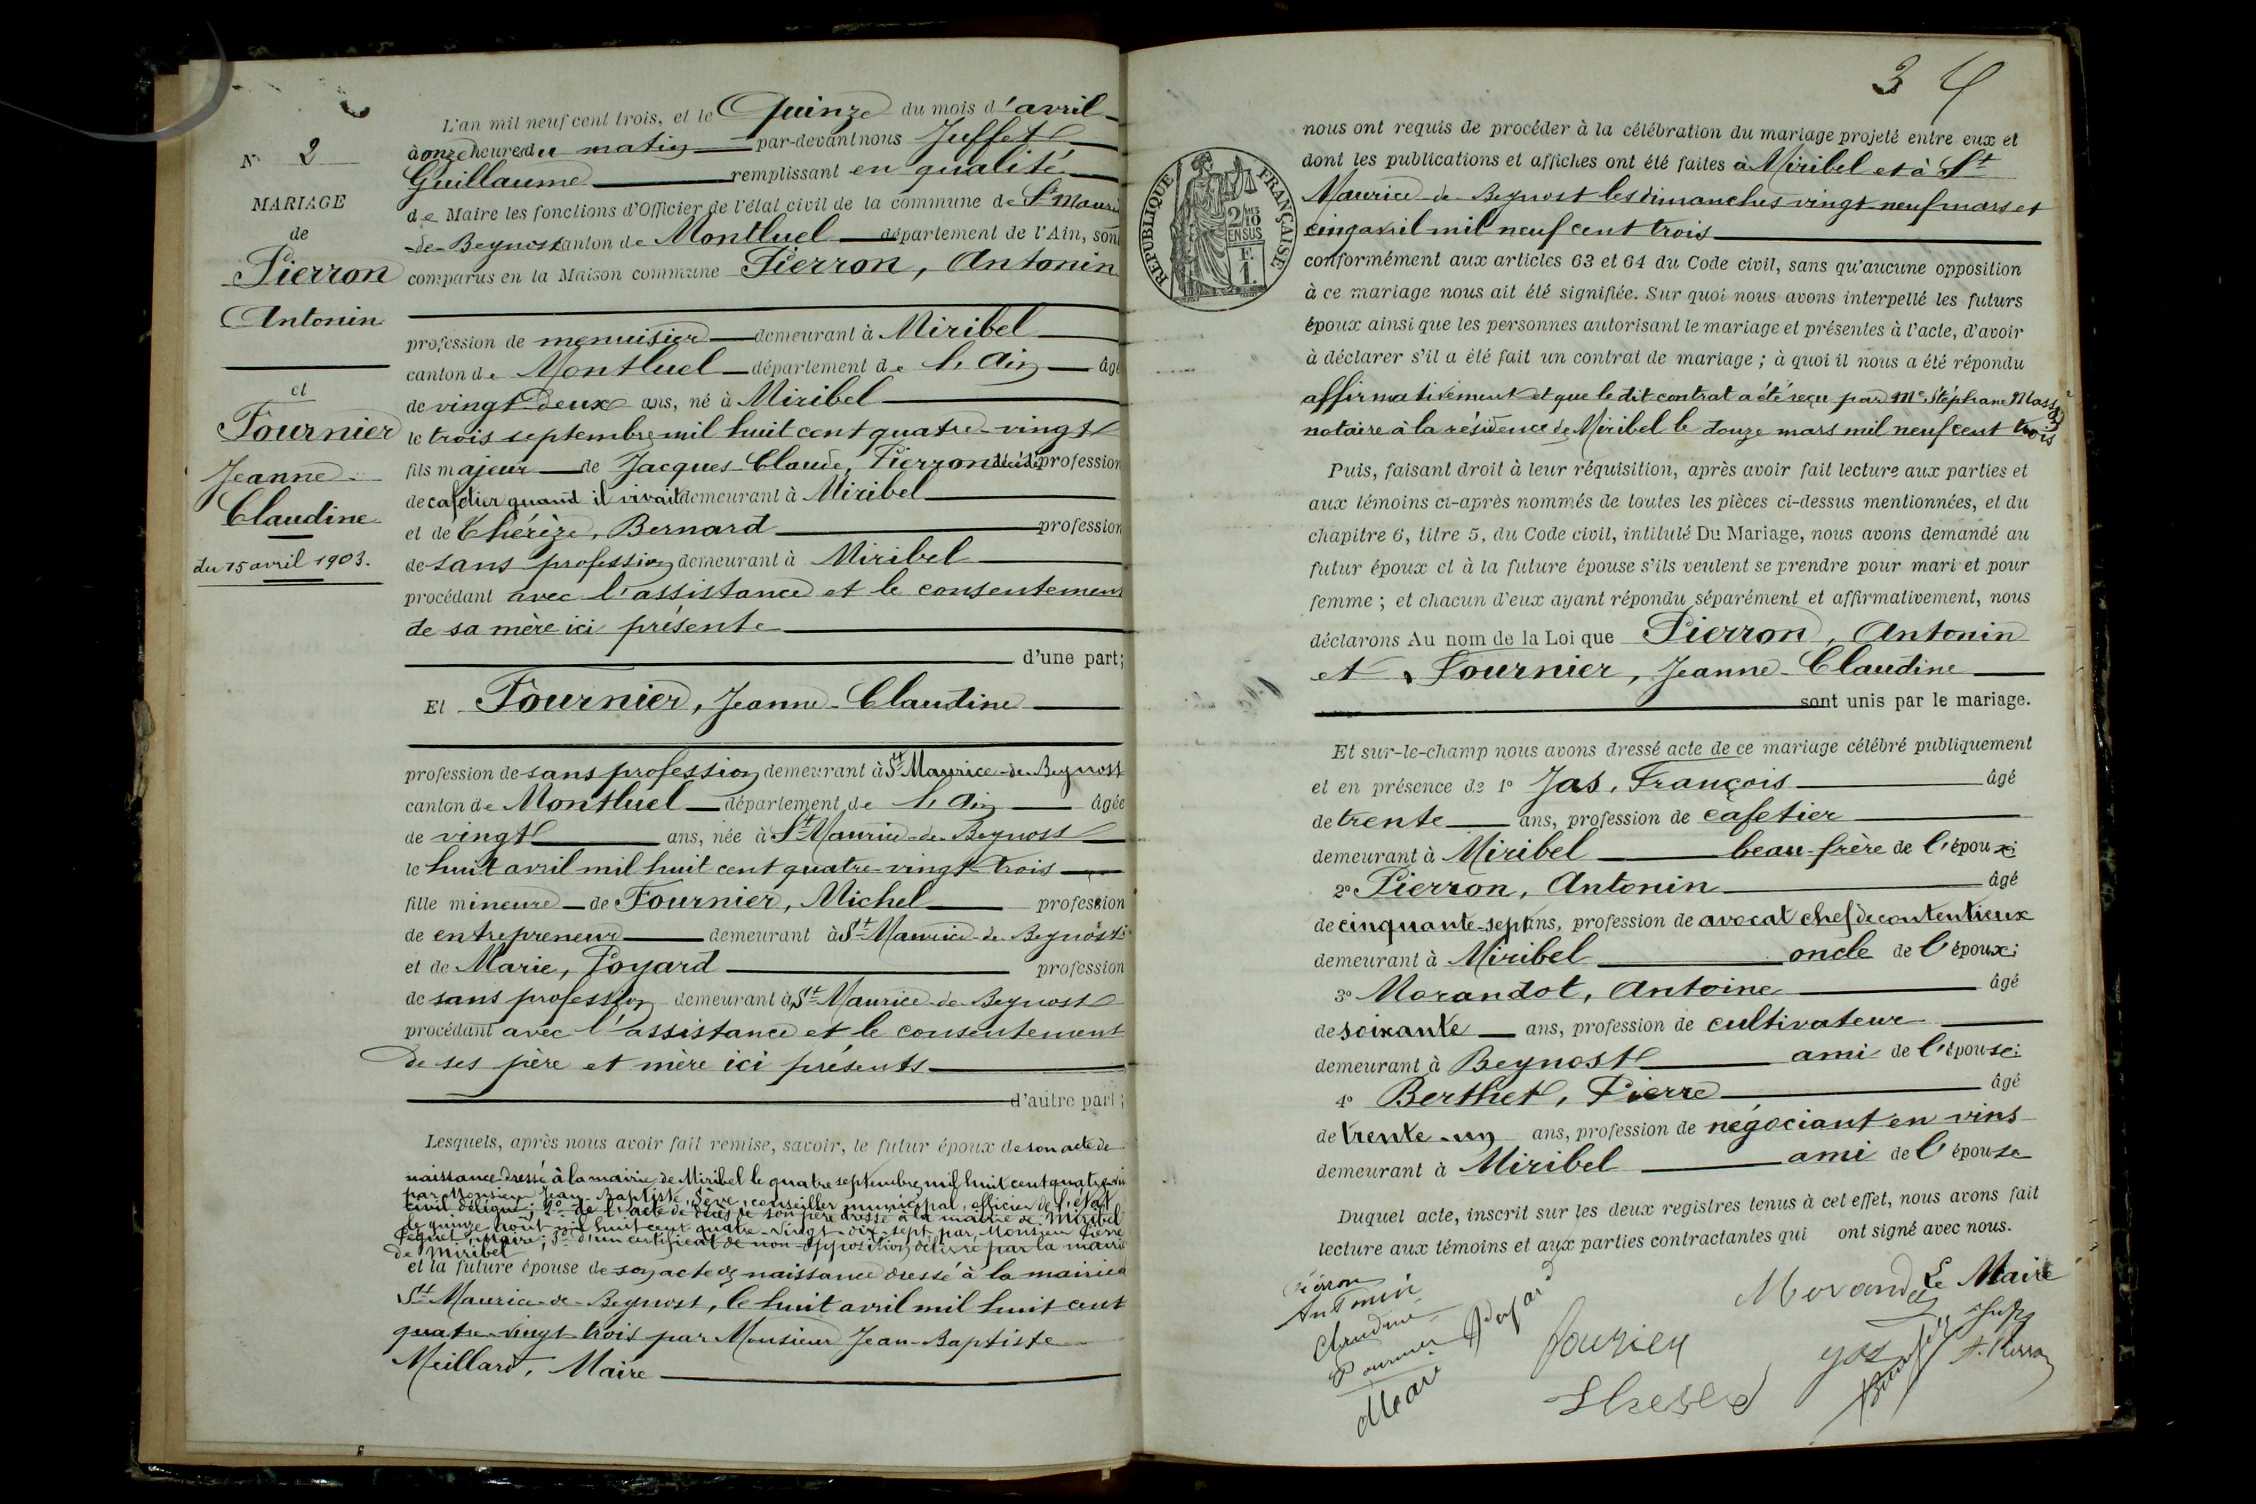 N° 2
MARIAGE
de
Pierron
Antonin
et
Fournier
Jeanne
Claudine
du 15 avril 1903.
L'an mil neuf cent trois, et le Quinze du mois d'avril
à onze heures du matin par-devant nous Juffet
Guillaume remplissant en qualité
de Maire les fonctions d'Officier de l'état civil de la commune de St Mauri
-de-Beynost canton de Montluel département de l'Ain, son
comparus en la Maison commune Pierron, Antonin
profession de menuisier demeurant à Miribel
canton de Montluel département de l'Ain âgé
de vingt-deux ans, né à Miribel
le trois septembre mil huit cent quatre-vingt
fils majeur de Jacques-Claude, Pierron décédé profession
de cafetier quand il vivait demeurant à Miribel
et de Thérèze, Bernard profession
de sans profession demeurant à Miribel
procédant avec l'assistance et le consentement
de sa mère ici présente
d'une part;
Et Fournier, Jeanne-Claudine
profession de sans profession demeurant à St-Maurice-de-Beynost
canton de Montluel département de l'Ain âgée
de vingt ans, née à St-Maurice-de-Beynost
le huit avril mil huit cent quatre-vingt-trois
fille mineure de Fournier, Michel profession
de entrepreneur demeurant à St-Maurice-de-Beynost
et de Marie, Poyard profession
de sans profession demeurant à St-Maurice-de-Beynost
procédant avec l'assistance et le consentement
de ses père et mère ici présents
d'autre part;
Lesquels, après nous avoir fait remise, savoir, le futur époux de son acte de
naissance dressé à la mairie de Miribel le quatre septembre mil huit cent quatre-vin
par Monsieur Jean-Baptiste, Sève, conseiller municipal, officier de l'état
civil délégué; 2° de l'acte de décès de son père dressé à la mairie de Miribel
le quinze août mil huit cent quatre-vingt-dix-sept par Monsieur Pierre
maire; 3° d'un certificat de non-opposition délivré par la mairie
de Miribel
et la future épouse de son acte de naissance dressé à la mairie d
St-Maurice-de-Beynost, le huit avril mil huit cent
quatre-vingt-trois par Monsieur Jean-Baptiste
Meillard, Maire
3 4
RÉPUBLIQUE FRANÇAISE
2/10 EN SUS
F. 1.
nous ont requis de procéder à la célébration du mariage projeté entre eux et
dont les publications et affiches ont été faites à Miribel et à St
Maurice-de-Beynost les dimanches vingt-neuf mars et
cinq avril mil neuf cent trois
conformément aux articles 63 et 64 du Code civil, sans qu'aucune opposition
à ce mariage nous ait été signifiée. Sur quoi nous avons interpellé les futurs
époux ainsi que les personnes autorisant le mariage et présentes à l'acte, d'avoir
à déclarer s'il a été fait un contrat de mariage; à quoi il nous a été répondu
affirmativement et que le dit contrat a été reçu par Me Stéphane
notaire à la résidence de Miribel le douze mars mil neuf cent trois
Puis, faisant droit à leur réquisition, après avoir fait lecture aux parties et
aux témoins ci-après nommés de toutes les pièces ci-dessus mentionnées, et du
chapitre 6, titre 5, du Code civil, intitulé Du Mariage, nous avons demandé au
futur époux et à la future épouse s'ils veulent se prendre pour mari et pour
femme; et chacun d'eux ayant répondu séparément et affirmativement, nous
déclarons Au nom de la Loi que Pierron, Antonin
et Fournier, Jeanne-Claudine
sont unis par le mariage.
Et sur-le-champ nous avons dressé acte de ce mariage célébré publiquement
et en présence de 1° Jas, François âgé
de trente ans, profession de cafetier
demeurant à Miribel beau-frère de l'époux;
2° Pierron, Antonin âgé
de cinquante-sept ans, profession de avocat chef de contentieux
demeurant à Miribel oncle de l'époux;
3° Morandot, Antoine âgé
de soixante ans, profession de cultivateur
demeurant à Beynost ami de l'épouse;
4° Berthet, Pierre âgé
de trente-un ans, profession de négociant en vins
demeurant à Miribel ami de l'épouse
Duquel acte, inscrit sur les deux registres tenus à cet effet, nous avons fait
lecture aux témoins et aux parties contractantes qui ont signé avec nous.
Pierron
Antonin
Claudine
Fournier
Poyard
Marie
Morandot
Le Maire